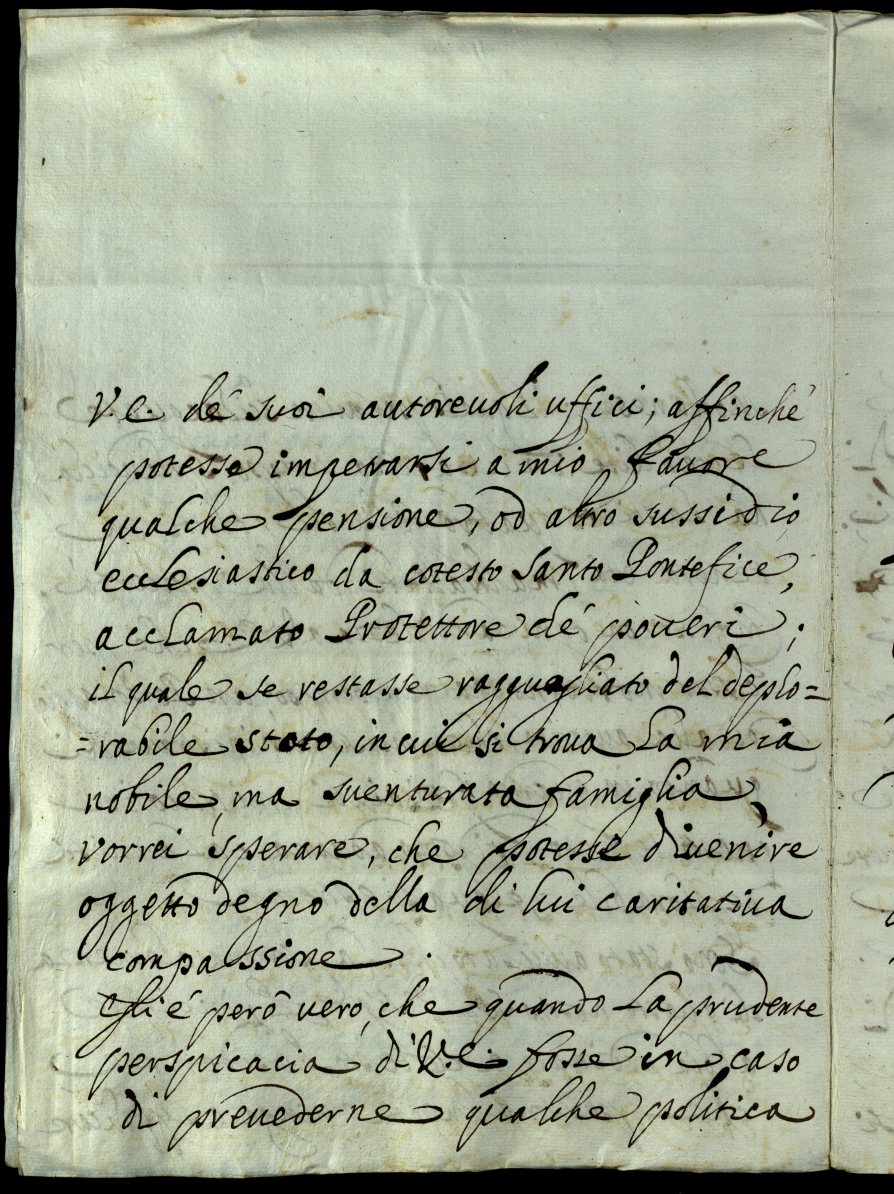 V. E. de' suoi autorevoli uffici; affinché
potesse impetrarsi a mio favore
qualche pensione, od altro sussidio
ecclesiastico da cotesto Santo Pontefice,
acclamato Protettore de' poveri;
il quale se restasse ragguagliato del deplo=
=rabile stato, in cui si trova la mia
nobile, ma sventurata famiglia,
vorrei sperare, che potesse divenire
oggetto degno della di lui caritativa
compassione.
Egli é peró vero, che quando la prudente
perspicacia di V. E. fosse in caso
di prevederne qualche politica